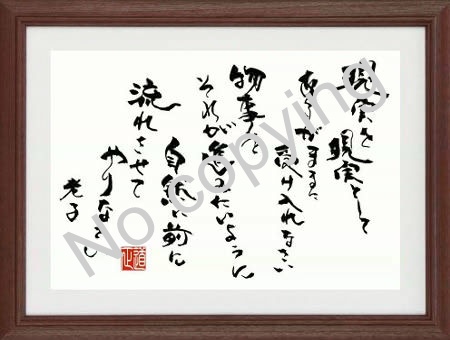 現実を
現実として
あるがままに
受け入れなさい
物事を
それが進みたいように
自然に前に
流れさせて
やりなさい
老子
No copying